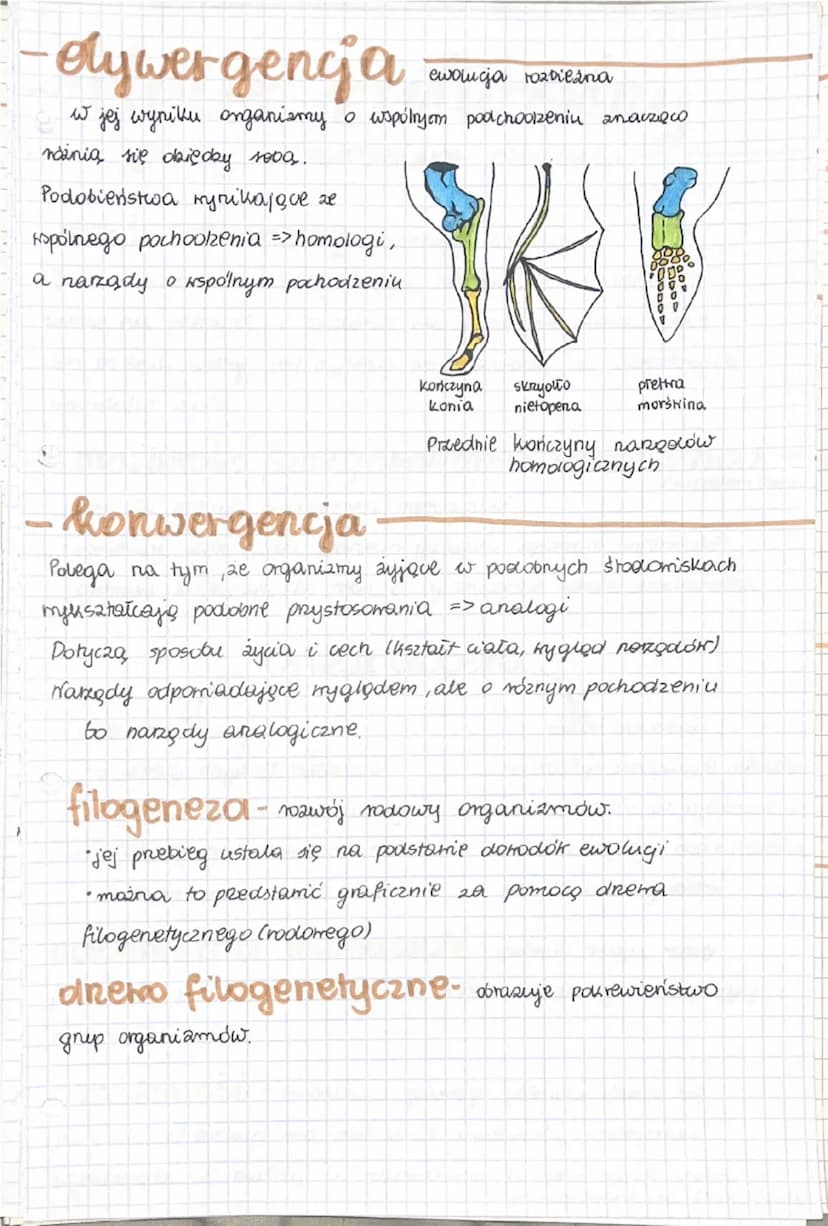 dywergencja ewolucja rozbieżna
W jej wyniku organizmy o wspólnym podchodzeniu znacząco
różnią się dzięday sobą.
Podobieństwa wynikające ze
wspólnego pochodzenia => homologi,
a narządy o wspólnym pochodzeniu
kończyna konia
skrzydło nietoperza
płetwa morświna
Przednie kończyny narządów
homologicznych
konwergencja
Polega na tym, że organizmy żyjące w podobnych środowiskach
wykształcają podobne przystosowania => analogi
Dotyczą sposobu życia i cech (kształt ciała, wygląd narządów)
Narządy odpowiadające wyglądem, ale o różnym pochodzeniu
to narządy analogiczne.
filogeneza - rozwój rodowy organizmów.
• jej przebieg ustala się na podstawie dowodów ewolucji
• można to przedstawić graficznie za pomocą drzewa
filogenetycznego (rodowego)
drzewo filogenetyczne - obrazuje pokrewieństwo
grup organizmów.